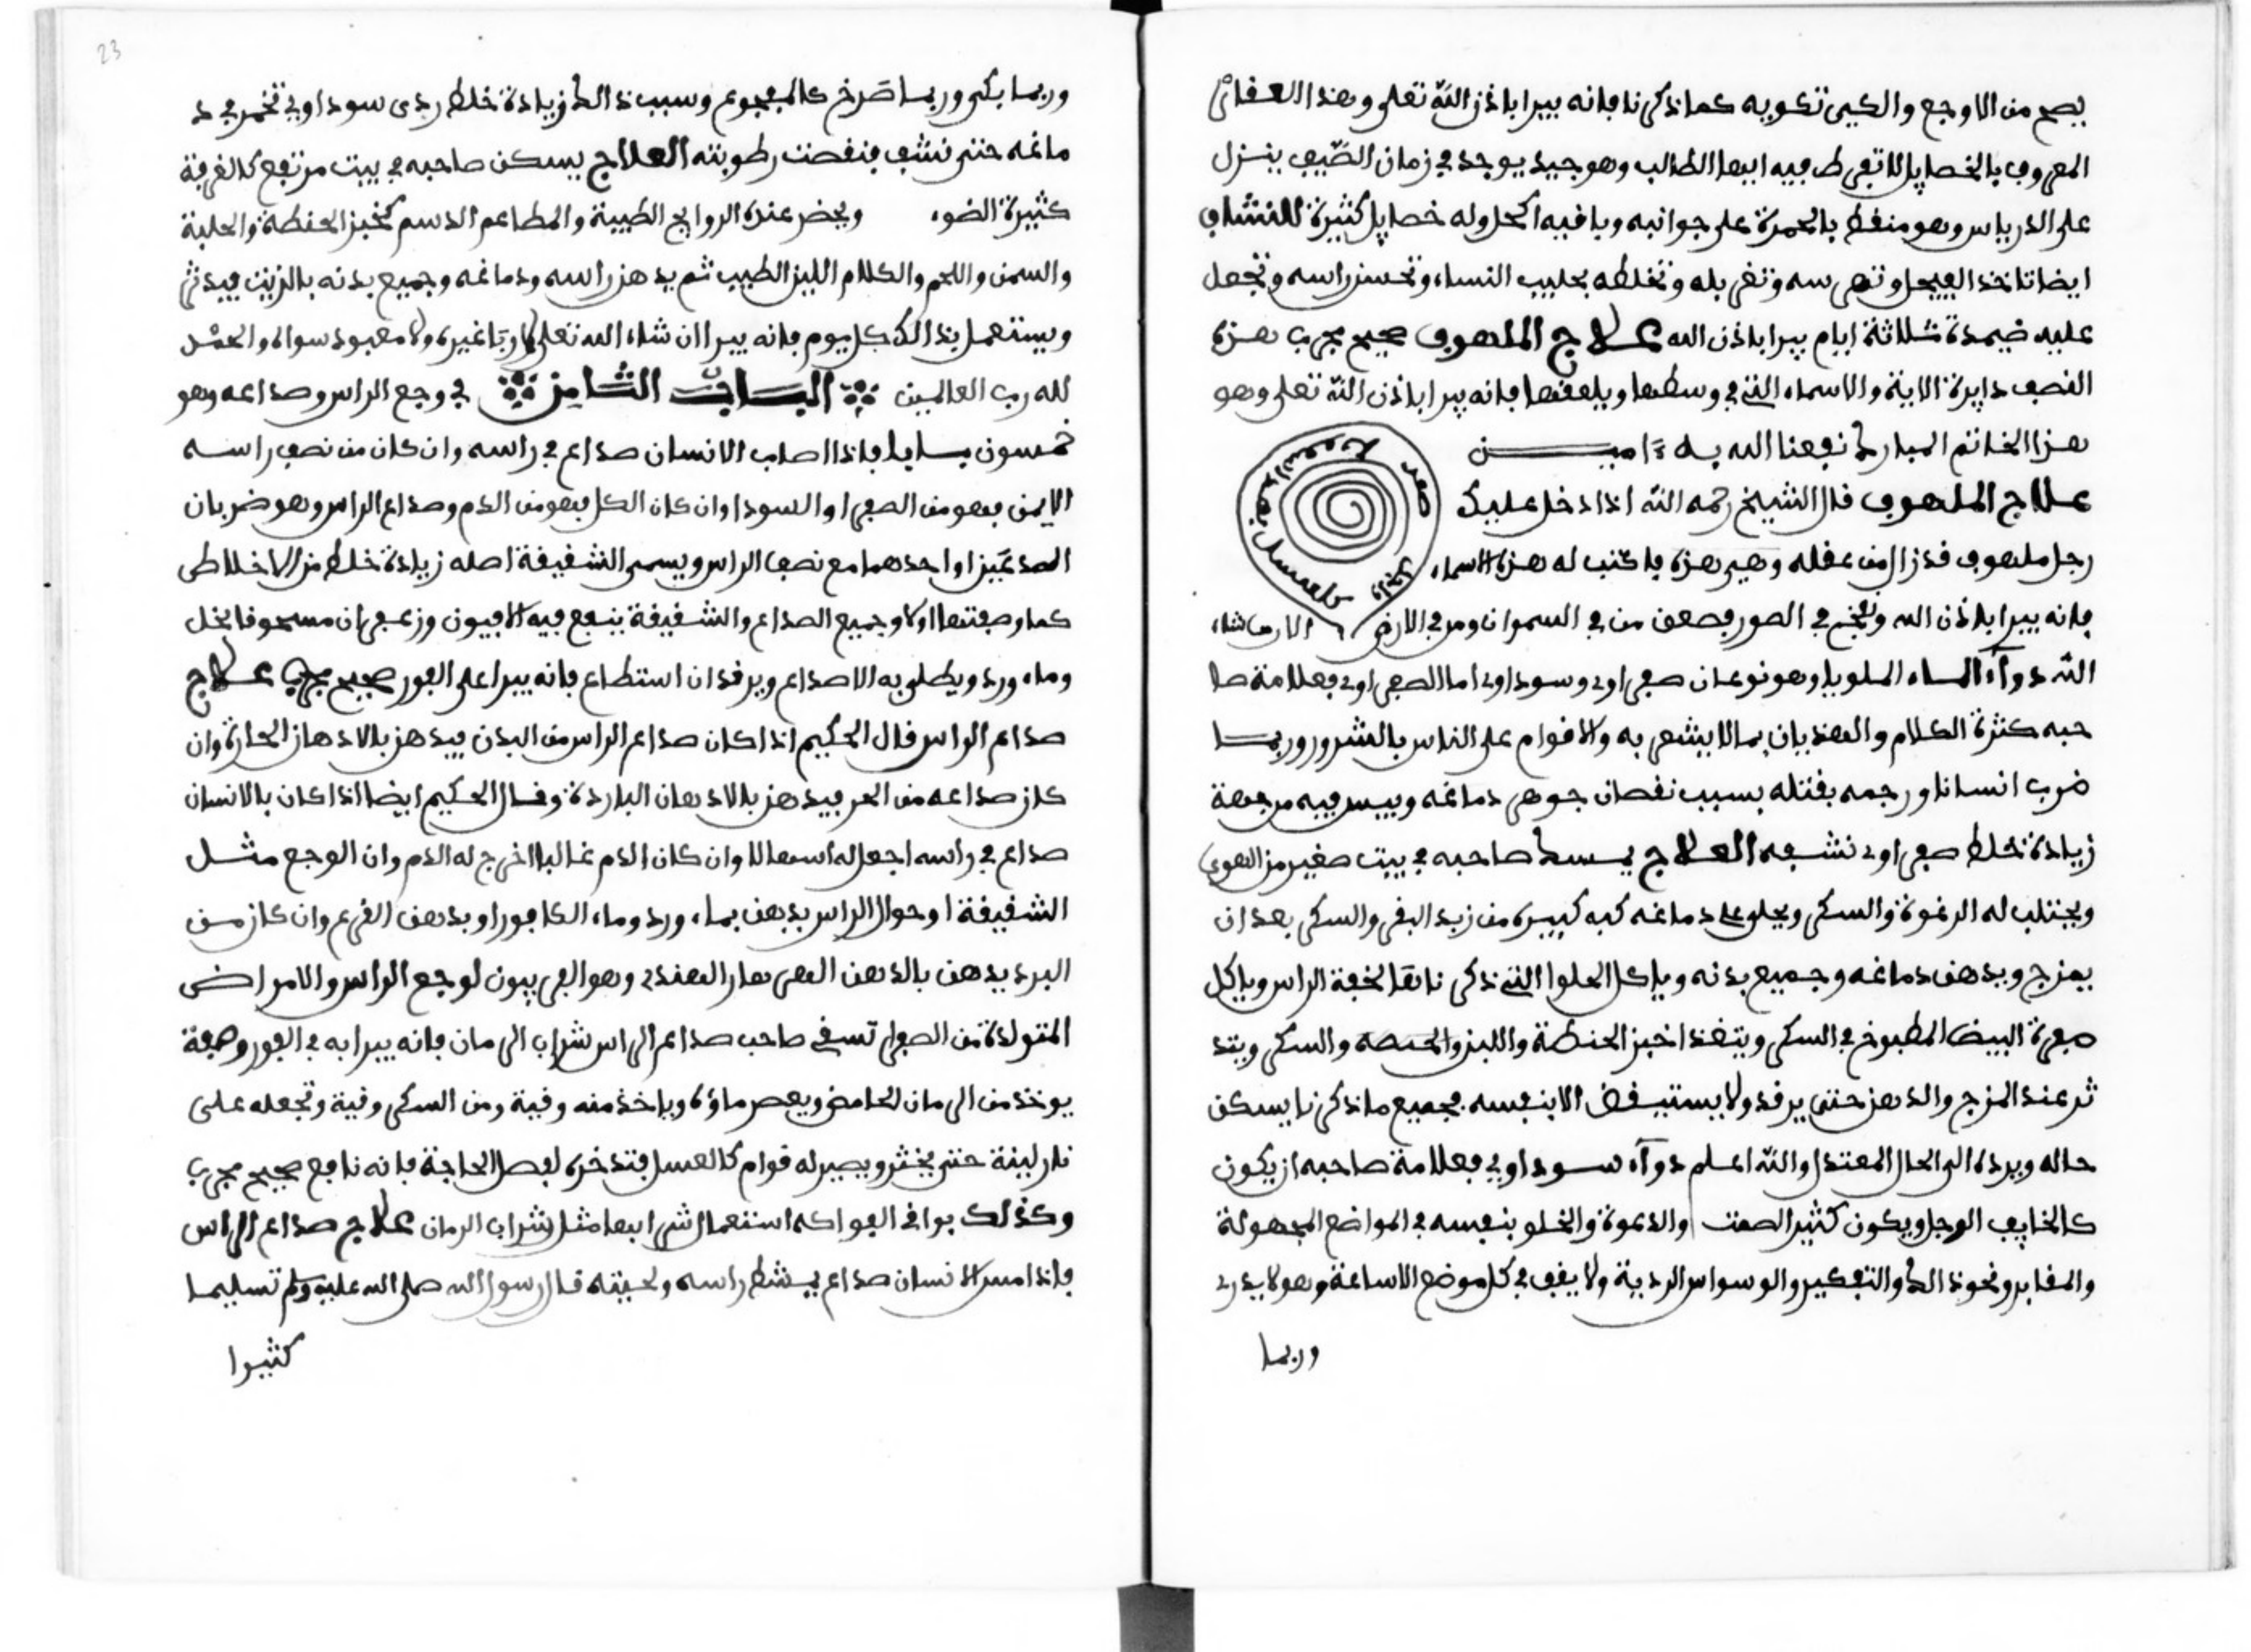 يصح من الاوجع والكي تكويه كما ذكرنا فانه يبرا باذن الله تعلى وهذا العقاقر
المعروف بالخصايل لا تفرط فيه ايها الطالب وهو جيد يوجد في زمان الصيف ينزل
على الدرياس وهو منقط بالحمرة على جوانبه وبافيه اكحل وله خصايل كثيرة للنشاف
ايضا تاخذ الفيجل وتهرسه وتغربله وتخلطه بحليب النساء وتحسن راسه وتجعل
عليه ضيمدة ثلاثة ايام يبرا باذن الله علاج الملهوف صحيح مجرب هذه
القصب دايرة الاية والاسماء التي في وسطها ويلعقها فانه يبرا باذن الله تعلى وهو
هذا الخاتم المبارك نفعنا الله به ءامين
علاج الملهوف قال الشيخ رحمه الله اذا دخل عليك
رجل ملهوف قد زال من عقله وهي هذه فاكتب له هذه الاسماء
فانه يبرا باذن الله ونفخ في الصور فصعق من في السموات ومن في الارض الا من شاء
الله دواء الماء الملويا وهو نوعان صفراوي وسوداوي اما الصفراوي فعلامة صا
حبه كثرة الكلام والهذيان بما لا يشعر به والاقوام على الناس بالشرور وربما
ضرب انسانا ورجمه بقتله بسبب نقصان جوهر دماغه ويبس فيه من جهة
زيادة خلط صفراوي نشفه العلاج يسكن صاحبه في بيت صغير من الهوى
ويجتلب له الرغوة والسكر ويحلو على دماغه كبه كبيرة من زبد البقر والسكر بعد ان
يمزج ويدهن دماغه وجميع بدنه وياكل الحلوا التي ذكرناها لخفة الراس وياكل
صفرة البيض المطبوخ في السكر ويتغذا خبز الحنطة واللبن والحنطة والسكر ويتد
ثر عند المزج والدهن حتى يرقد ولا يستيقض الا بنفسه فجميع ما ذكرنا يسكن
حاله ويرده الى الحال المعتدل والله اعلم دواء سوداوي فعلامة صاحبه ان يكون
كالخايف الوجل ويكون كثير الصمت والدعوة والخلو بنفسه في المواضع المجهولة
والمقابر ونحو ذالك والتفكير والوسواس الردية ولا يقف في كل موضع الا ساعة وهو لا يدري
وربما
23
وربما بكى وربما صرخ كالمفجوع وسبب ذالك زيادة خلط ردى سوداوي تخمر في د
ماغه حتى نشف فنقصت رطوبته العلاج يسكن صاحبه في بيت مرتفع كالغرفة
كثيرة الضوء ويحضر عنده الروايح الطيبة والمطاعم الدسم كخبز الحنطة والحلبة
والسمن واللحم والكلام اللين الطيب ثم يدهن راسه ودماغه وجميع بدنه بالزيت فيدثر
ويستعمل بذالك كل يوم فانه يبرا ان شاء الله تعلى لا ربا غيره ولا معبود سواه والحمد
لله رب العالمين الباب الثامن في وجع الراس وصداعه وهو
خمسون بابا فاذا اصاب الانسان صداع في راسه وان كان من نصف راسه
الايمن فهو من الصفرا او السودا وان كان الكل فهو من الدم وصداع الراس وهو ضربان
الصدغين او احدهما مع نصف الراس ويسمى الشقيقة اصله زيادة خلط من الاخلاط
كما وصفتها اولا وجميع الصداع والشقيقة ينفع فيه الافيون وزعفران مسحوقا بخل
وماء ورد ويطلى به الاصداع ويرقد ان استطاع فانه يبرا على الفور صحيح مجرب علاج
صداع الراس قال الحكيم اذا كان صداع الراس من البدن فيدهن بالادهان الحارة وان
كان صداعه من الحر فيدهن بالادهان الباردة وقال الحكيم ايضا اذا كان بالانسان
صداع في راسه اجعل له اسهالا وان كان الدم غالبا اخرج له الدم وان الوجع مثل
الشقيقة او حوال الراس يدهن بماء ورد وماء الكافور او بدهن القرع وان كان من
البرد يدهن بالدهن الهر بهار الهندي وهو الفربيون لوجع الراس والامراض
المتولدة من الصفرا تسقى صاحب صداع الراس شراب الرمان فانه يبرا به في الفور وصفة
يوخذ من الرمان الحامض ويعصر ماؤه وياخذ منه وقية ومن السكر وقية وتجعله على
نار لينة حتى يخثر ويصير له قوام كالعسل فتدخره لفصل الحاجة فانه نافع صحيح مجرب
وكذلك بواقي الفواكه استعمال شرابها مثل شراب الرمان علاج صداع الراس
فاذا مس الانسان صداع يمشط راسه ولحيته قال رسول الله صلى الله عليه وسلم تسليما
كثيرا